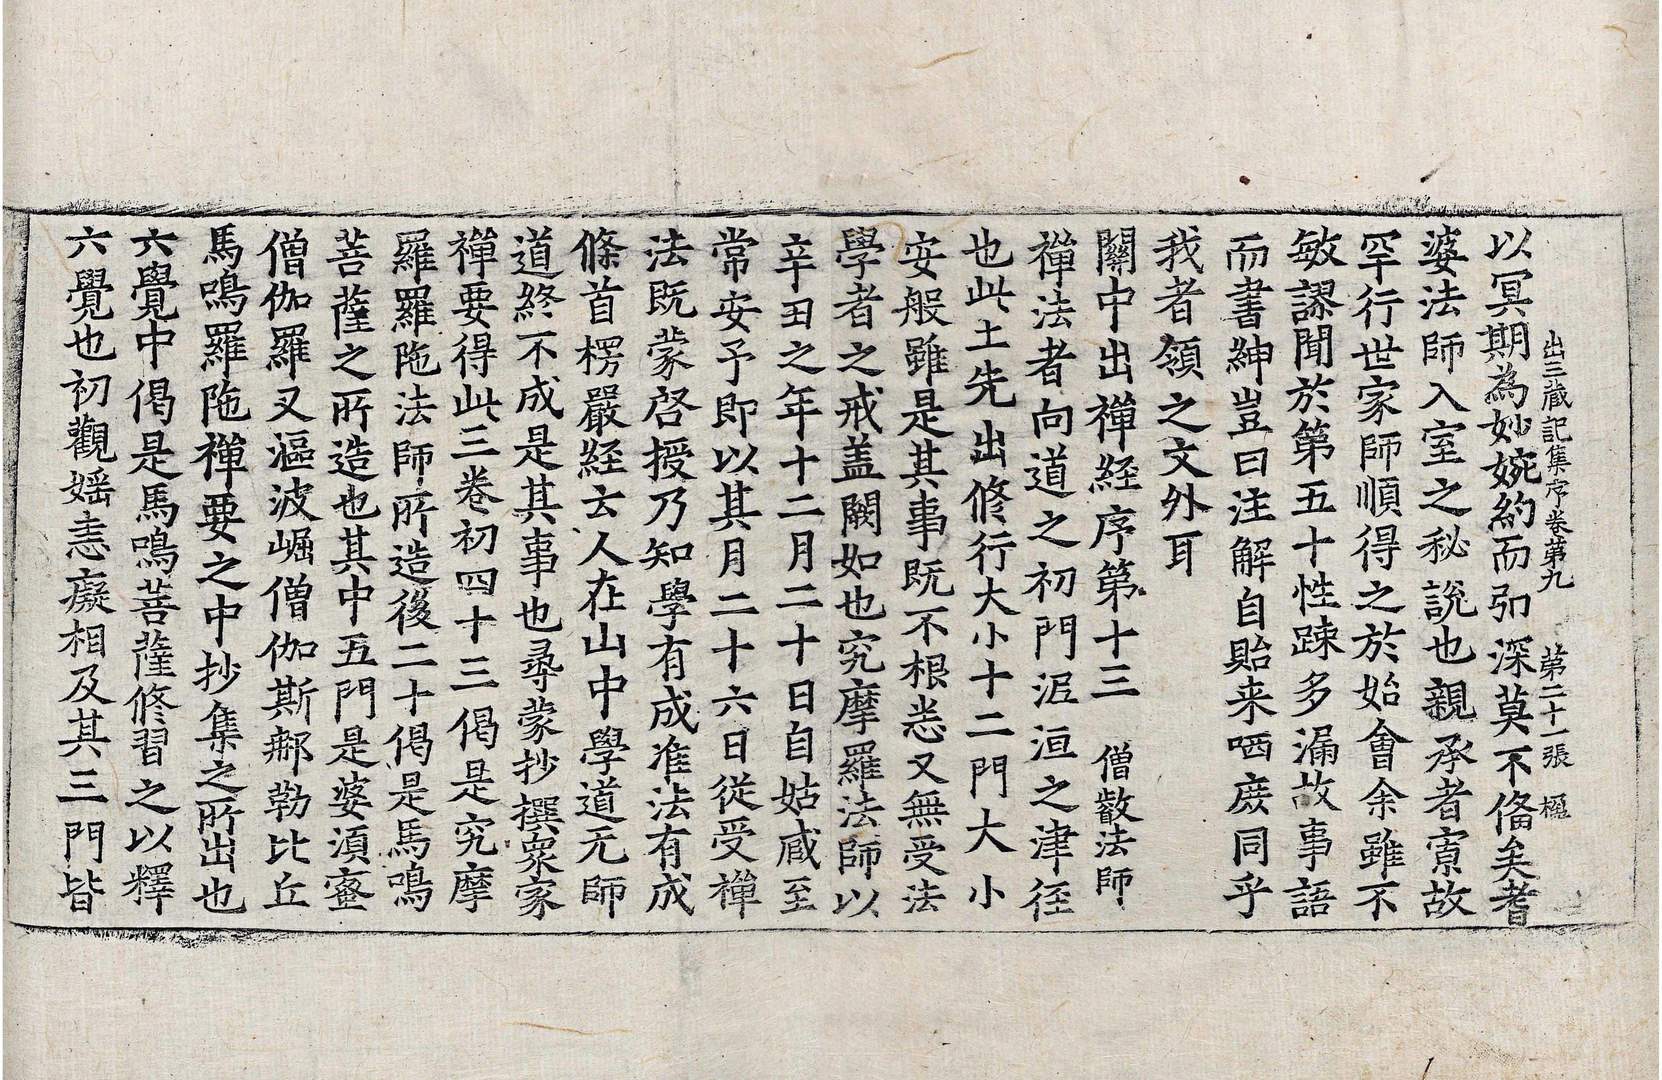 出三蔵記集序卷第九 第二十一張 楹
以冥期為妙婉約而弘深莫不俻矣耆
婆法師入室之秘說也親承者寡故
罕行世家師順得之於始會余雖不
敏謬聞於第五十性踈多漏故事語
而書紳豈曰注解自貽来哂庶同乎
我者領之文外耳
關中出禪経序第十三 僧叡法師
禪法者向道之初門泥洹之津径
也此土先出修行大小十二門大小
安般雖是其事既不根悉又無受法
學者之戒盖闕如也究摩羅法師以
辛丑之年十二月二十日自姑臧至
常安予即以其月二十六日從受禪
法既蒙啓授乃知學有成准法有成
條首楞嚴経云人在山中學道无師
道終不成是其事也尋蒙抄撰衆家
禪要得此三卷初四十三偈是究摩
羅羅陁法師所造後二十偈是馬鳴
菩薩之所造也其中五門是婆湏蜜
僧伽羅叉漚波崛僧伽斯那勒比丘
馬鳴羅陁禪要之中抄集之所出也
六覺中偈是馬鳴菩薩修習之以釋
六覺也初觀婬恚癡相及其三門皆